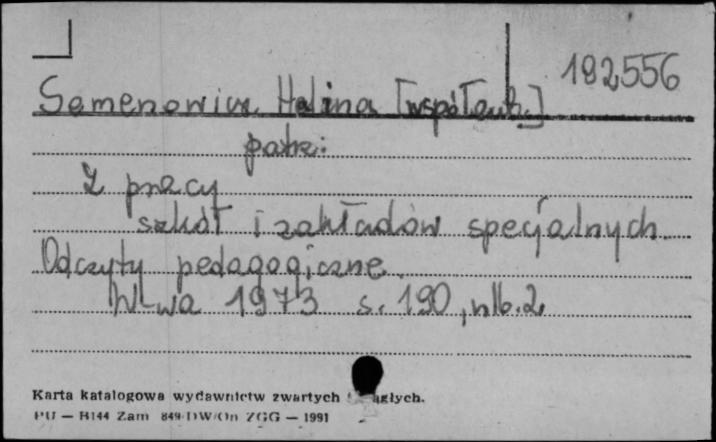 192556
Semenowicz Halina [współaut.]
patrz:
Z pracy
szkół i zakładów specjalnych
Odczyty pedagogiczne.
W-wa 1973 s. 190, nlb. 2.
Karta katalogowa wydawnictw zwartych i ciągłych.
PU — B144 Zam 849 DW/On ZGG — 1991